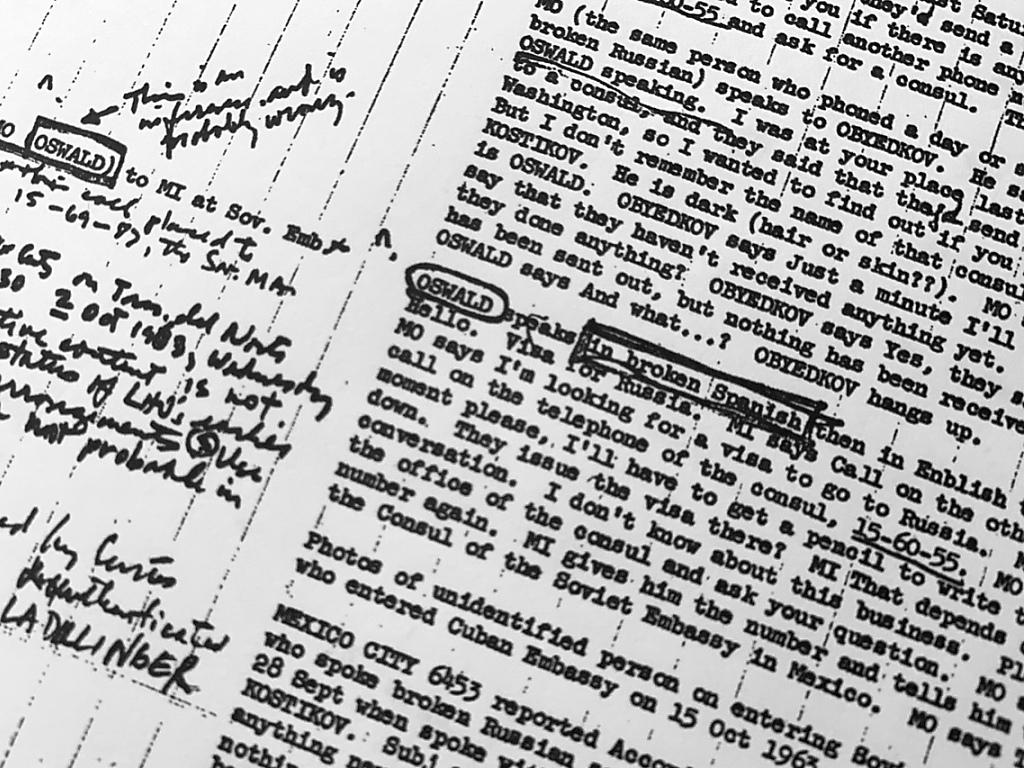 This is an
inference and is
probably wrong.
MO OSWALD) to MI at Sov. Emb
call placed to
15-69-87, the Sov. MA
2 Oct 1963, Wednesday
content is not
NOT probable in
by Curtis
LADILLINGER
they'd send a
you if there is any
60-55 and ask for a consul.
to call another phone
MO (the same person who phoned a day or s
broken Russian) speaks to OBYEDKOV. He s
OSWALD speaking. I was at your place last
to a consul, and they said that they'd send
Washington, so I wanted to find out if you
But I don't remember the name of that consul
KOSTIKOV. He is dark (hair or skin??). MO
is OSWALD. OBYEDKOV says Just a minute I'll
say that they haven't received anything yet.
they done anything? OBYEDKOV says Yes, they s
has been sent out, but nothing has been receive
OSWALD says And what...? OBYEDKOV hangs up.
OSWALD speaks in broken Spanish then in Enblish
Hello. Visa for Russia. MI says Call on the oth
MO says I'm looking for a visa to go to Russia.
call on the telephone of the consul, 15-60-55. MO
moment please, I'll have to get a pencil to write t
down. They issue the visa there? MI That depends
conversation. I don't know about this business. Pl
the office of the consul and ask your question. MO
number again. MI gives him the number and tells him
the Consul of the Soviet Embassy in Mexico. MO says T
Photos of unidentified person on entering Sovi
who entered Cuban Embassy on 15 Oct 1963
MEXICO CITY 6453 reported Accor
who spoke broken Russian
28 Sept when spoke wit
KOSTIKOV. Subj
anything
nothin